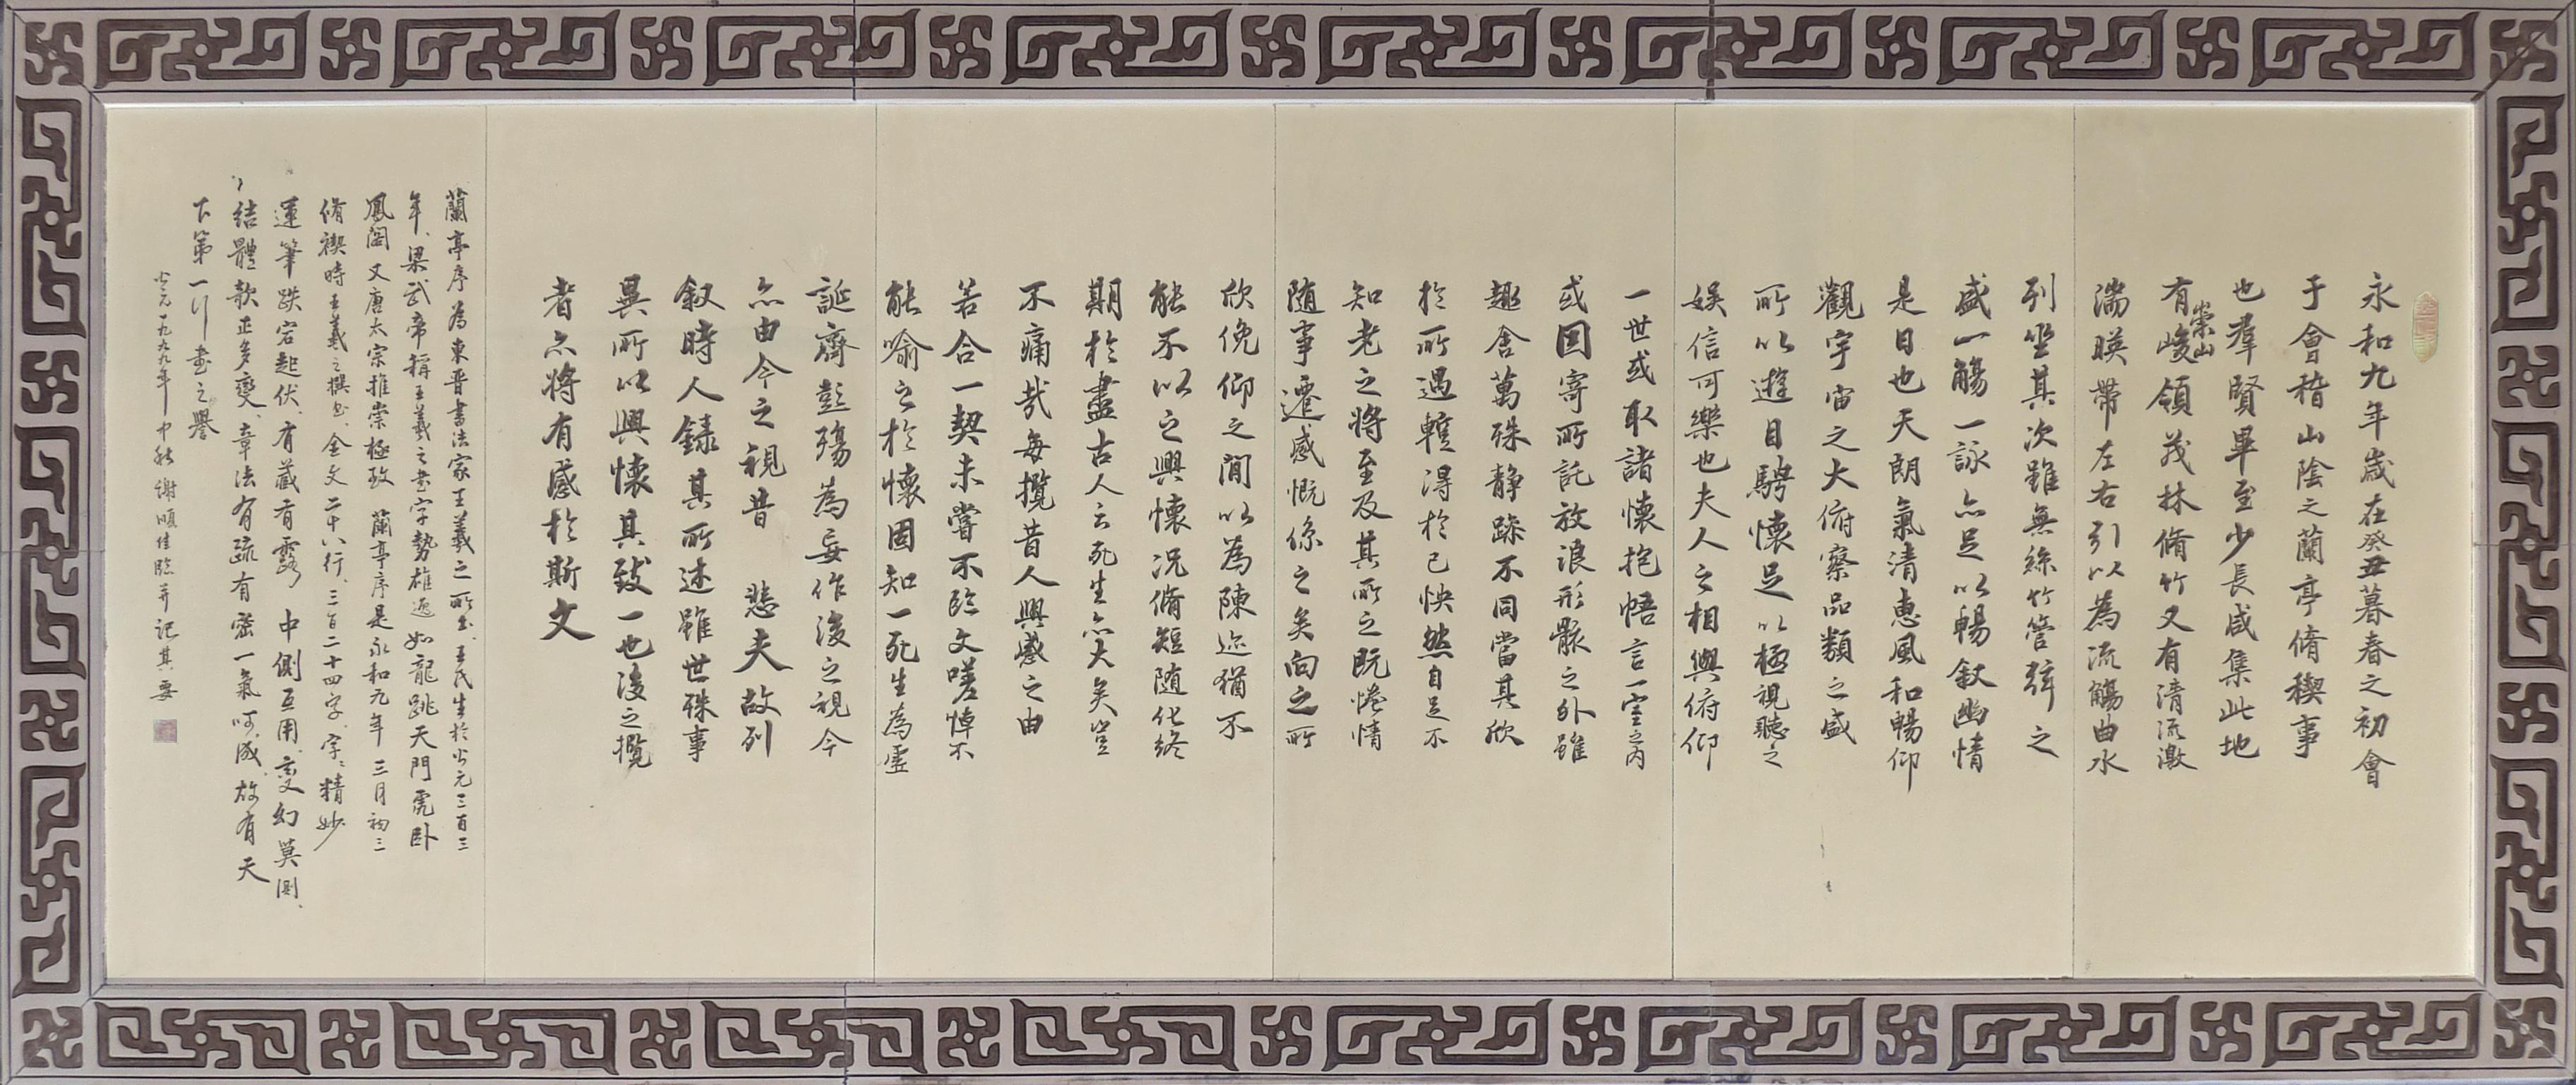 永和九年歲在癸丑暮春之初會
于會稽山陰之蘭亭脩稧事
也羣賢畢至少長咸集此地
有崇山峻領茂林脩竹又有清流激
湍暎帶左右引以為流觴曲水
列坐其次雖無絲竹管弦之
盛一觴一詠亦足以暢叙幽情
是日也天朗氣清惠風和暢仰
觀宇宙之大俯察品類之盛
所以遊目騁懷足以極視聽之
娛信可樂也夫人之相與俯仰
一世或取諸懷抱悟言一室之內
或因寄所託放浪形骸之外雖
趣舍萬殊静躁不同當其欣
於所遇蹔得於己怏然自足不
知老之將至及其所之既惓情
隨事遷感慨係之矣向之所
欣俛仰之閒以為陳迹猶不
能不以之興懷況脩短隨化終
期於盡古人云死生亦大矣豈
不痛哉每攬昔人興感之由
若合一契未嘗不臨文嗟悼不
能喻之於懷固知一死生為虛
誕齊彭殤為妄作後之視今
亦由今之視昔 悲夫故列
叙時人錄其所述雖世殊事
異所以興懷其致一也後之攬
者亦將有感於斯文
蘭亭序為東晋書法家王羲之所書、王氏生於公元三百三
年、梁武帝稱王羲之書字勢雄逸如龍跳天門虎卧
鳳閣 又唐太宗推崇極致 蘭亭序是永和九年三月初三
脩禊時王羲之撰書、全文二十八行、三百二十四字、字、精妙
運筆跌宕起伏、有藏有露 中側互用、變幻莫測、
結體欹正多變、章法有疏有密一氣呵成、故有天
下第一行書之譽
公元一九九九年中秋謝順佳臨并記其要